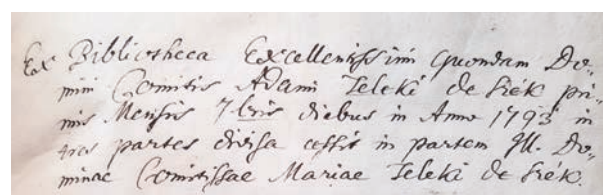 Ex Bibliotheca Excellentissimi quondam Do„
mini Comitis Adami Teleki de Szék pri„
mis Mensis 7bris diebus in Anno 1793 in
tres partes divisa cessit in partem Ill. Do„
minae Comitissae Mariae Teleki de Szék.